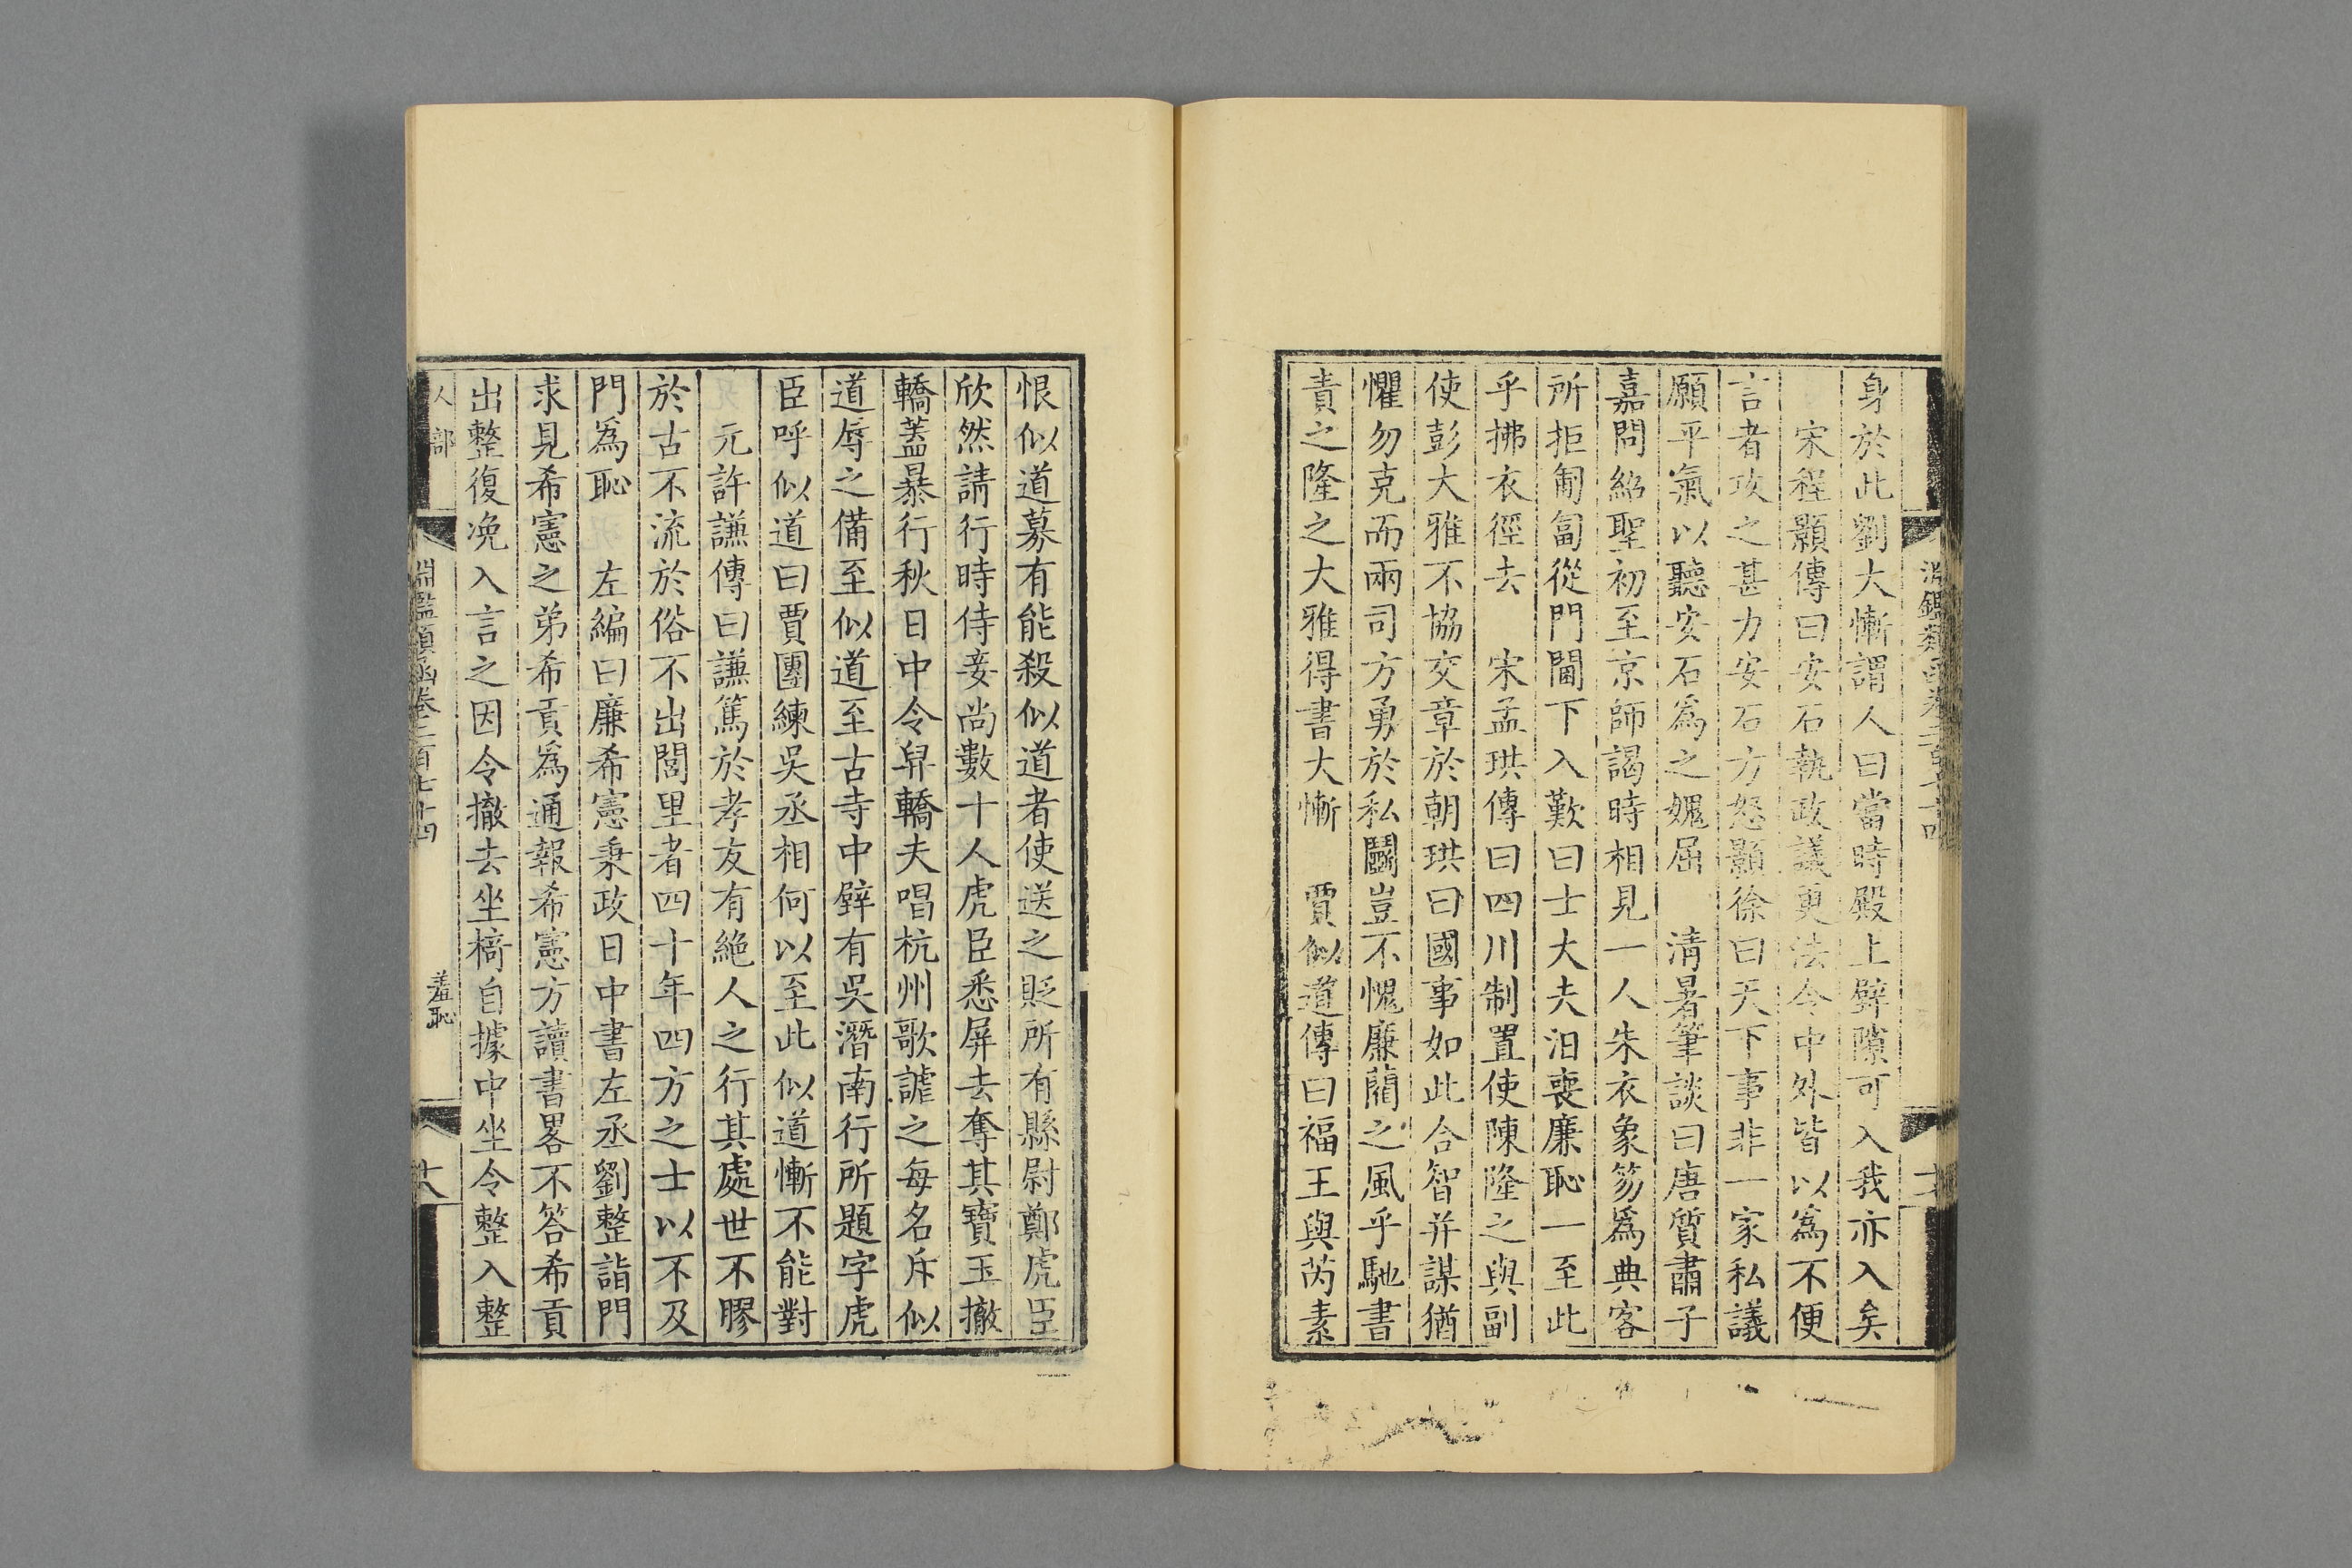 身於此劉大慚謂人曰當時殿上罅隙可入我亦入矣
宋程顥傳曰安石執政議更法令中外皆以為不便
言者攻之甚力安石方怒顥徐曰天下事非一家私議
願平氣以聽安石為之媿屈　清暑筆談曰唐質肅子
嘉問紹聖初至京師謁時相見一人朱衣象笏為典客
所拒匍匐從門闑下入歎曰士大夫汨喪廉恥一至此
乎拂衣徑去　宋孟珙傳曰四川制置使陳隆之與副
使彭大雅不協交章於朝珙曰國事如此合智并謀猶
懼勿克而兩司方勇於私鬬豈不愧廉藺之風乎馳書
責之隆之大雅得書大慚　賈似道傳曰福王與芮素
恨似道募有能殺似道者使送之貶所有縣尉鄭虎臣
欣然請行時侍妾尚數十人虎臣悉屏去奪其寶玉撤
轎蓋暴行秋日中令舁轎夫唱杭州歌謔之每名斥似
道辱之備至似道至古寺中壁有吳潛南行所題字虎
臣呼似道曰賈團練吳丞相何以至此似道慚不能對
元許謙傳曰謙篤於孝友有絕人之行其處世不膠
於古不流於俗不出閭里者四十年四方之士以不及
門為恥　左編曰廉希憲秉政日中書左丞劉整詣門
求見希憲之弟希貢為通報希憲方讀書畧不答希貢
出整復浼入言之因令撤去坐椅自據中坐令整入整
人部
淵鑑類函卷二百七十四
羞恥